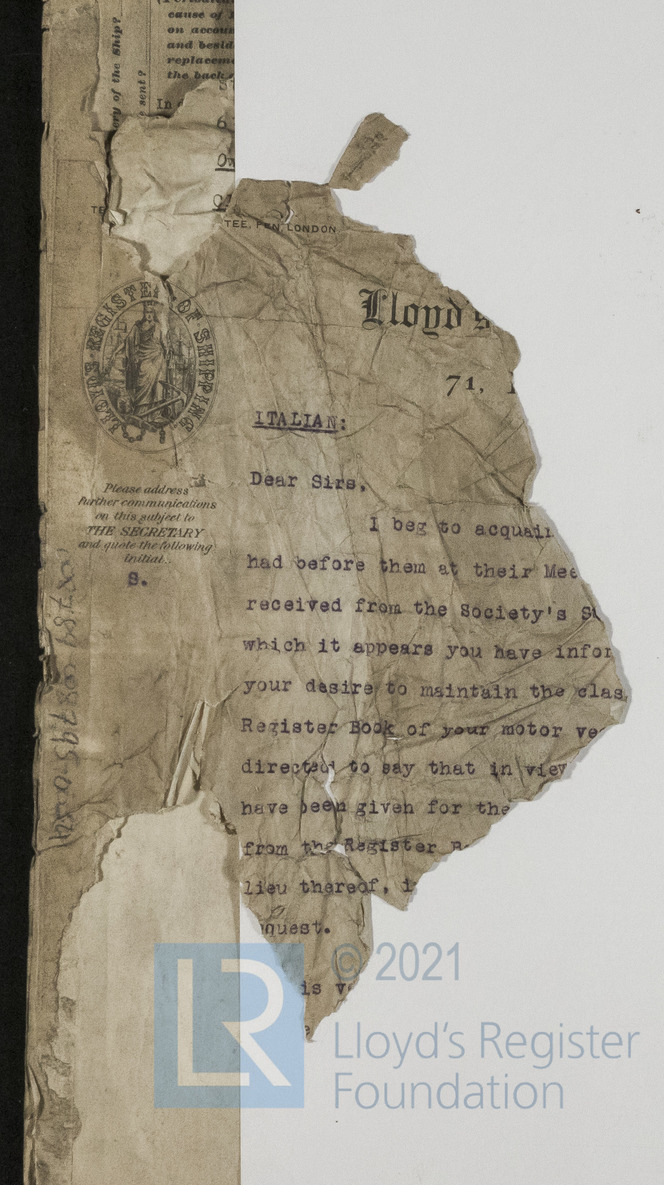 cause of
on accou
and besid
replaceme
the back
ery of the Ship?
e sent?
In
6
Ow
TE
TEE, FEN, LONDON
LLOYDS REGISTER OF SHIPPING
Lloyd's
71,
ITALIAN:
Dear Sirs,
I beg to acquain
had before them at their Mee
received from the Society's Su
which it appears you have infor
your desire to maintain the clas
Register Book of your motor ve
directed to say that in view
have been given for the
from the Register B
lieu thereof, i
quest.
is v
Please address
further communications
on this subject to
THE SECRETARY
and quote the following
initial.
S.
LR
© 2021
Lloyd's Register
Foundation